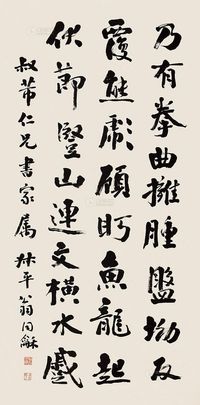 乃有拳曲擁腫盤坳反
覆熊彪顧盼魚龍起
伏節豎山連文橫水蹙
叔芾仁兄書家屬 叔平翁同龢